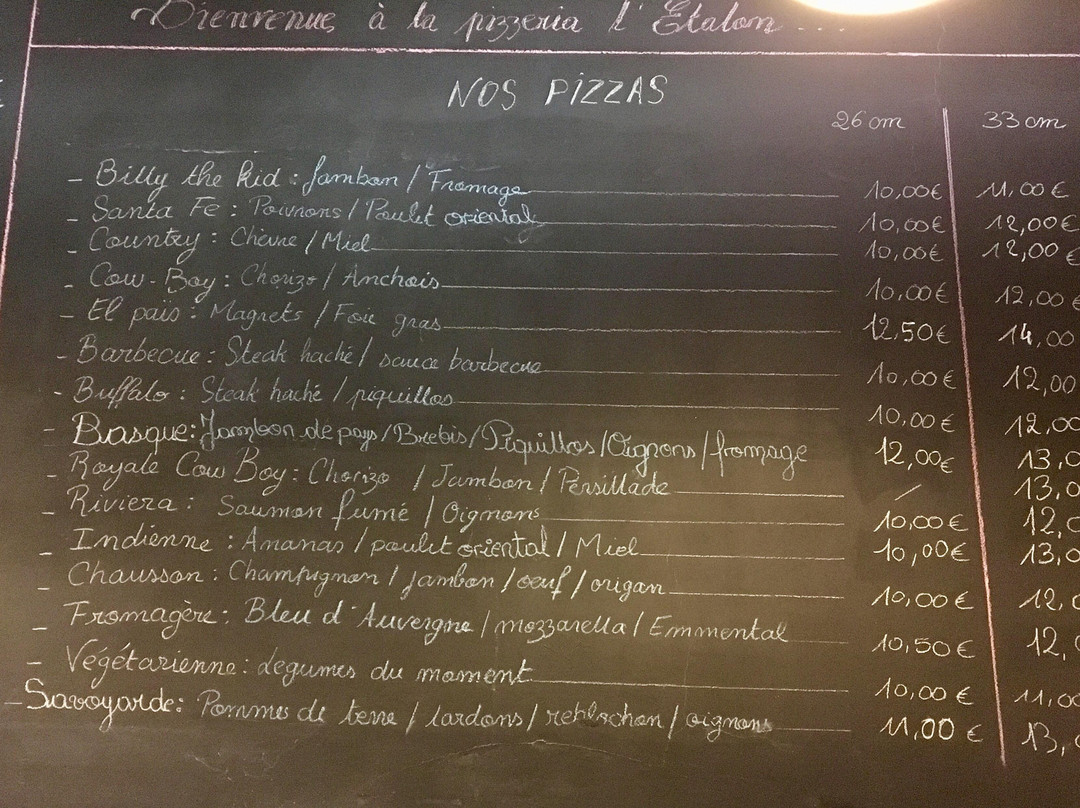 Bienvenue à la pizzeria l'Etalon ....
NOS PIZZAS
26 cm 33 cm
- Billy the kid : Jambon / Fromage 10,00€ 11,00€
- Santa Fe : Poivrons / Poulet oriental 10,00€ 12,00€
- Country : Chèvre / Miel 10,00€ 12,00 €
- Cow-Boy : Chorizo / Anchois 10,00€ 12,00 €
- El païs : Magrets / Foie gras 12,50€ 14,00
- Barbecue : Steak haché / sauce barbecue 10,00€ 12,00
- Buffalo : Steak haché / piquillos 10,00€ 12,00
- Basque : Jambon de pays / Brebis / Piquillos / Oignons / fromage 12,00€ 13,0
- Royale Cow Boy : Chorizo / Jambon / Persillade / 13,0
- Riviera : Saumon fumé / Oignons 10,00€ 12,0
- Indienne : Ananas / poulet oriental / Miel 10,00€ 13,0
- Chausson : Champignon / jambon / oeuf / origan 10,00€ 12,0
- Fromagère : Bleu d'Auvergne / mozzarella / Emmental 10,50€ 12,
- Végétarienne : légumes du moment 10,00 € 11,00
- Savoyarde : Pommes de terre / lardons / reblochon / oignons 11,00 € 13,